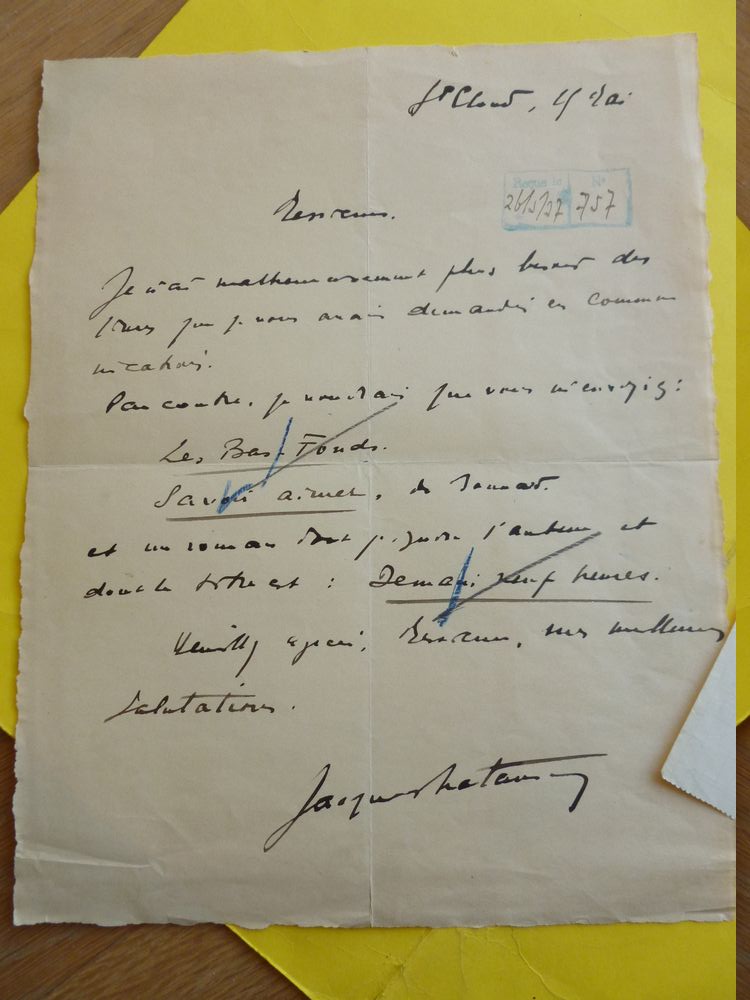 St Cloud, 15 Mai
Reçue le N°
26/5/37 757
Messieurs.
Je n'ai malheureusement plus besoin des
livres que je vous avais demandés en commu
nication.
Par contre, je voudrais que vous m'envoyiez :
Les Bas-Fonds.
Savoir aimer, de Bonnard.
et un roman dont j'ignore l'auteur et
dont le titre est : Demain neuf heures.
Veuillez agréer, Messieurs, mes meilleures
salutations.
Jacques